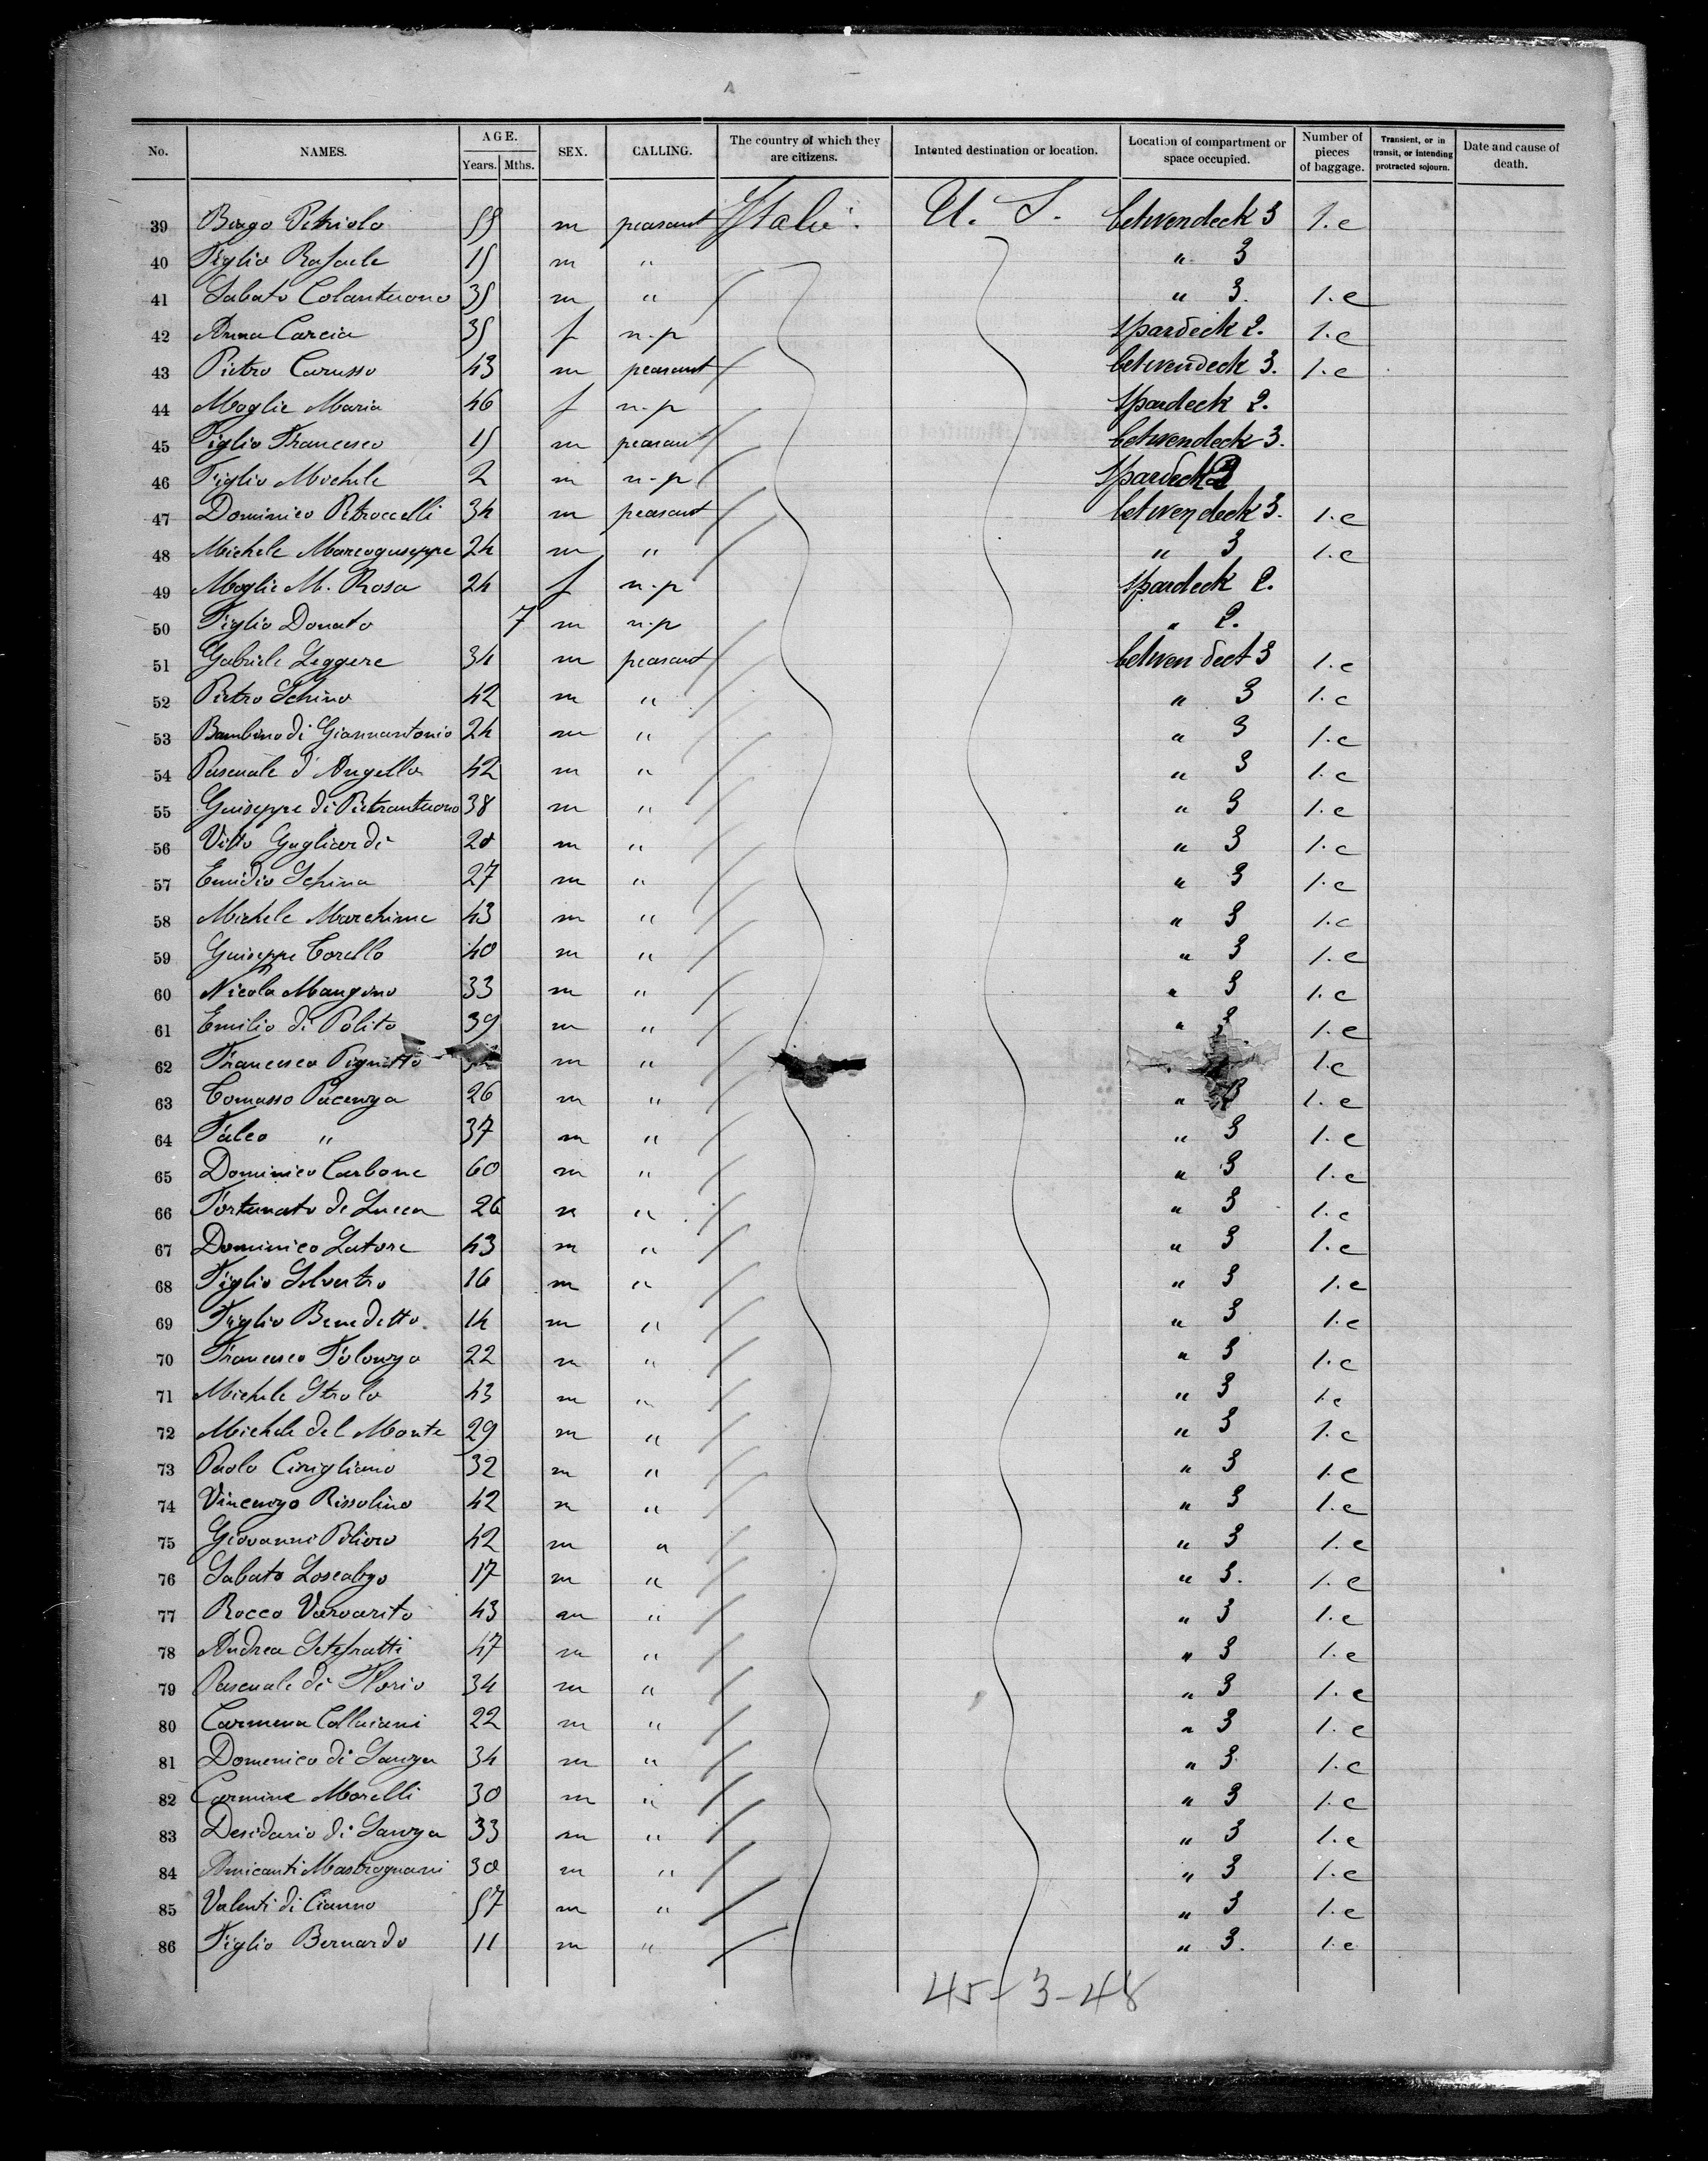 No. NAMES. AGE. Years. Mths. SEX. CALLING. The country of which they are citizens. Intented destination or location. Location of compartment or space occupied. Number of pieces of baggage. Transient, or in transit, or intending protracted sojourn. Date and cause of death.
39 Petriolo 55 m peasant Italie. U. S. betwendeck 3 1.c
40 Figlio Rafaele 15 m " " 3
41 Sabato Colantuono 35 m " " 3. 1.c
42 Anna Carcia 35 f n.p spardeck 2. 1.c
43 Pietro Carusso 43 m peasant betwendeck 3. 1.c
44 Moglie Maria 46 f n.p spardeck 2.
45 Figlio Francesco 15 m peasant betwendeck 3.
46 Figlio Michele 2 m n.p spardeck 2
47 Dominico Petroccelli 34 m peasant betwendeck 3. 1.c
48 Michele Marcoguseppe 24 m " " 3 1.c
49 Moglie M. Rosa 24 f n.p spardeck 2.
50 Figlio Donato 7 m n.p " 2.
51 Gabriele Leggere 34 m peasant betwen deck 3 1.c
52 Pietro Schino 42 m " " 3 1.c
53 Bambino di Giannantonio 24 m " " 3 1.c
54 Pascuale d'Angello 42 m " " 3 1.c
55 Guiseppe di Pietrantuono 38 m " " 3 1.c
56 Vitto Gagliardi 20 m " " 3 1.c
57 Emidio Schina 27 m " " 3 1.c
58 Michele 43 m " " 3 1.c
59 Guiseppe Torello 40 m " " 3 1.c
60 Nicola Mangono 33 m " " 3 1.c
61 Emilio di Polito 39 m " " 3 1.c
62 Francesco Pignatto m " 1.c
63 Tomasso Pacenza 26 m " " 3 1.c
64 Falco " 37 m " " 3 1.c
65 Dominico Carbone 60 m " " 3 1.c
66 Fortunato de Lucca 26 m " " 3 1.c
67 Dominico Latore 43 m " " 3 1.c
68 Figlio Silvestro 16 m " " 3 1.c
69 Figlio Benedetto. 14 m " " 3 1.c
70 Francesco Folonza 22 m " " 3 1.c
71 Michele 43 m " " 3 1.c
72 Michele del Monte 29 m " " 3 1.c
73 Paolo Cirigliano 32 m " " 3 1.c
74 Vincenzo Rissolino 42 m " " 3 1.c
75 Giovanni 42 m " " 3 1.c
76 Sabato Loscalzo 17 m " " 3. 1.c
77 Rocco Varvarito 43 m " " 3 1.c
78 Andrea 47 m " " 3 1.c
79 Pascuale di Florio 34 m " " 3 1.c
80 Carmena Colluiani 22 m " " 3 1.c
81 Domenico di Sanza 34 m " " 3 1.c
82 Carmine Morelli 30 m " " 3 1.c
83 Desidario di Sanza 33 m " " 3 1.c
84 Amicanti Mastrognani 30 m " " 3 1.c
85 Valenti di Cianno 57 m " " 3 1.c
86 Figlio Bernardo 11 m " " 3. 1.c
45-3-48